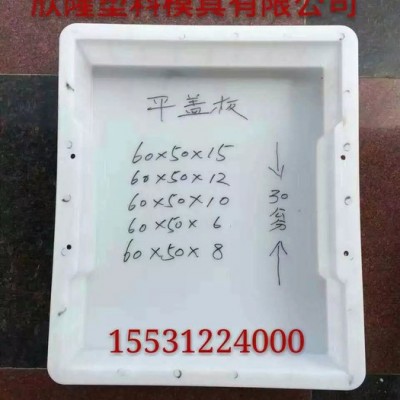 欣隆塑料模具有限公司
平盖板
60×50×15
60×50×12
60×50×10
60×50×6
60×50×8
30公分
15531224000